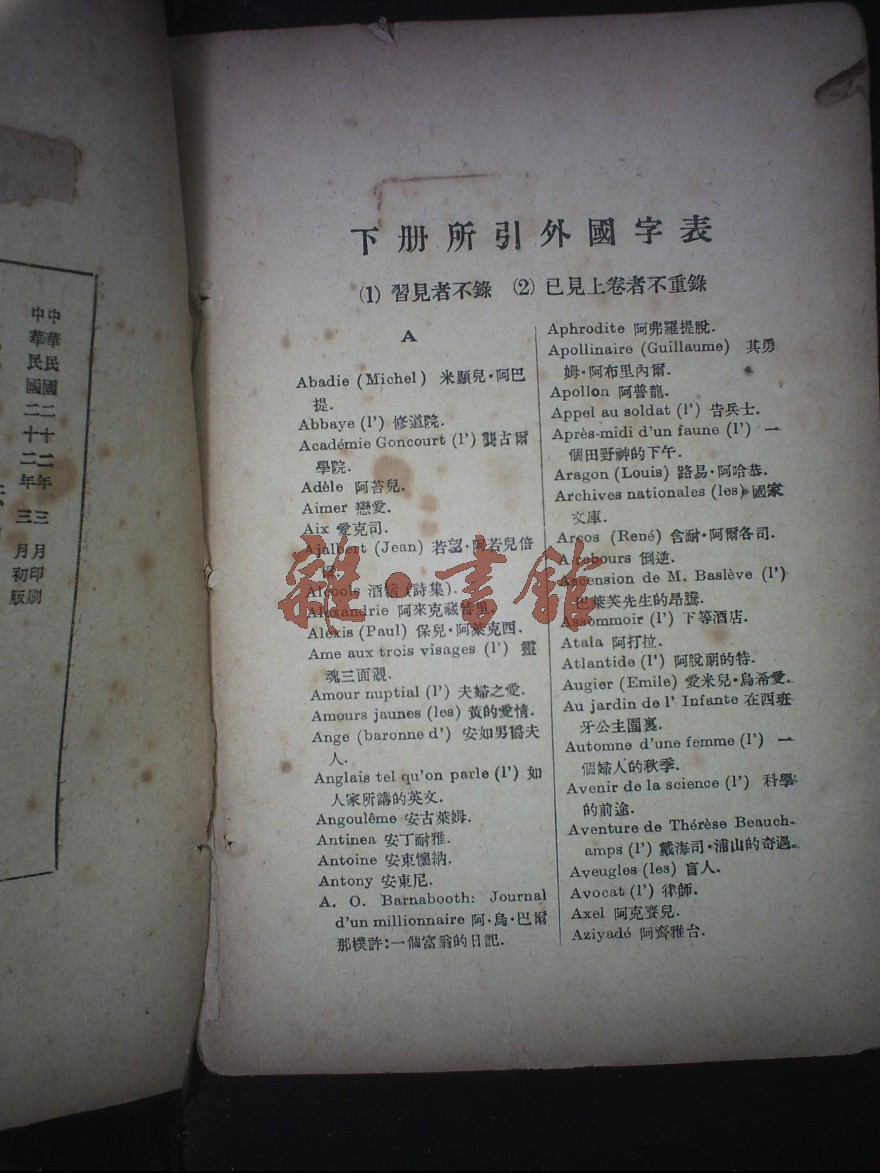 中華民國二十二年三月印刷
中華民國二十二年三月初版
下册所引外國字表
(1) 習見者不錄 (2) 已見上卷者不重錄
A
Abadie (Michel) 米顯兒·阿巴
提.
Abbaye (l') 修道院.
Académie Goncourt (l') 龔古爾
學院.
Adèle 阿荅兒.
Aimer 戀愛.
Aix 愛克司.
Ajalbert (Jean) 若望·阿若兒倍
Alcools 酒精 (詩集).
Alexandrie 阿來克藏特里.
Alexis (Paul) 保兒·阿萊克西.
Ame aux trois visages (l') 靈
魂三面觀.
Amour nuptial (l') 夫婦之愛.
Amours jaunes (les) 黃的愛情.
Ange (baronne d') 安如男爵夫
人.
Anglais tel qu'on parle (l') 如
人家所講的英文.
Angoulême 安古萊姆.
Antinea 安丁耐雅.
Antoine 安東懷納.
Antony 安東尼.
A. O. Barnabooth: Journal
d'un millionnaire 阿·烏·巴爾
那樸許:一個富翁的日記.
Aphrodite 阿弗羅提脫.
Apollinaire (Guillaume) 其勇
姆·阿布里內爾.
Apollon 阿普龍.
Appel au soldat (l') 告兵士.
Après-midi d'un faune (l') 一
個田野神的下午.
Aragon (Louis) 路易·阿哈恭.
Archives nationales (les) 國家
文庫.
Arcos (René) 舍耐·阿爾各司.
A rebours 倒逆.
Ascension de M. Baslève (l')
巴萊芙先生的昂騰.
Assommoir (l') 下等酒店.
Atala 阿打拉.
Atlantide (l') 阿脫朗的特.
Augier (Emile) 愛米兒·烏希愛.
Au jardin de l' Infante 在西班
牙公主園裏.
Automne d'une femme (l') 一
個婦人的秋季.
Avenir de la science (l') 科學
的前途.
Aventure de Thérèse Beauch-
amps (l') 戴海司·浦山的奇遇。
Aveugles (les) 盲人.
Avocat (l') 律師.
Axel 阿克賽兒.
Aziyadé 阿齊雅台.
雜·書館